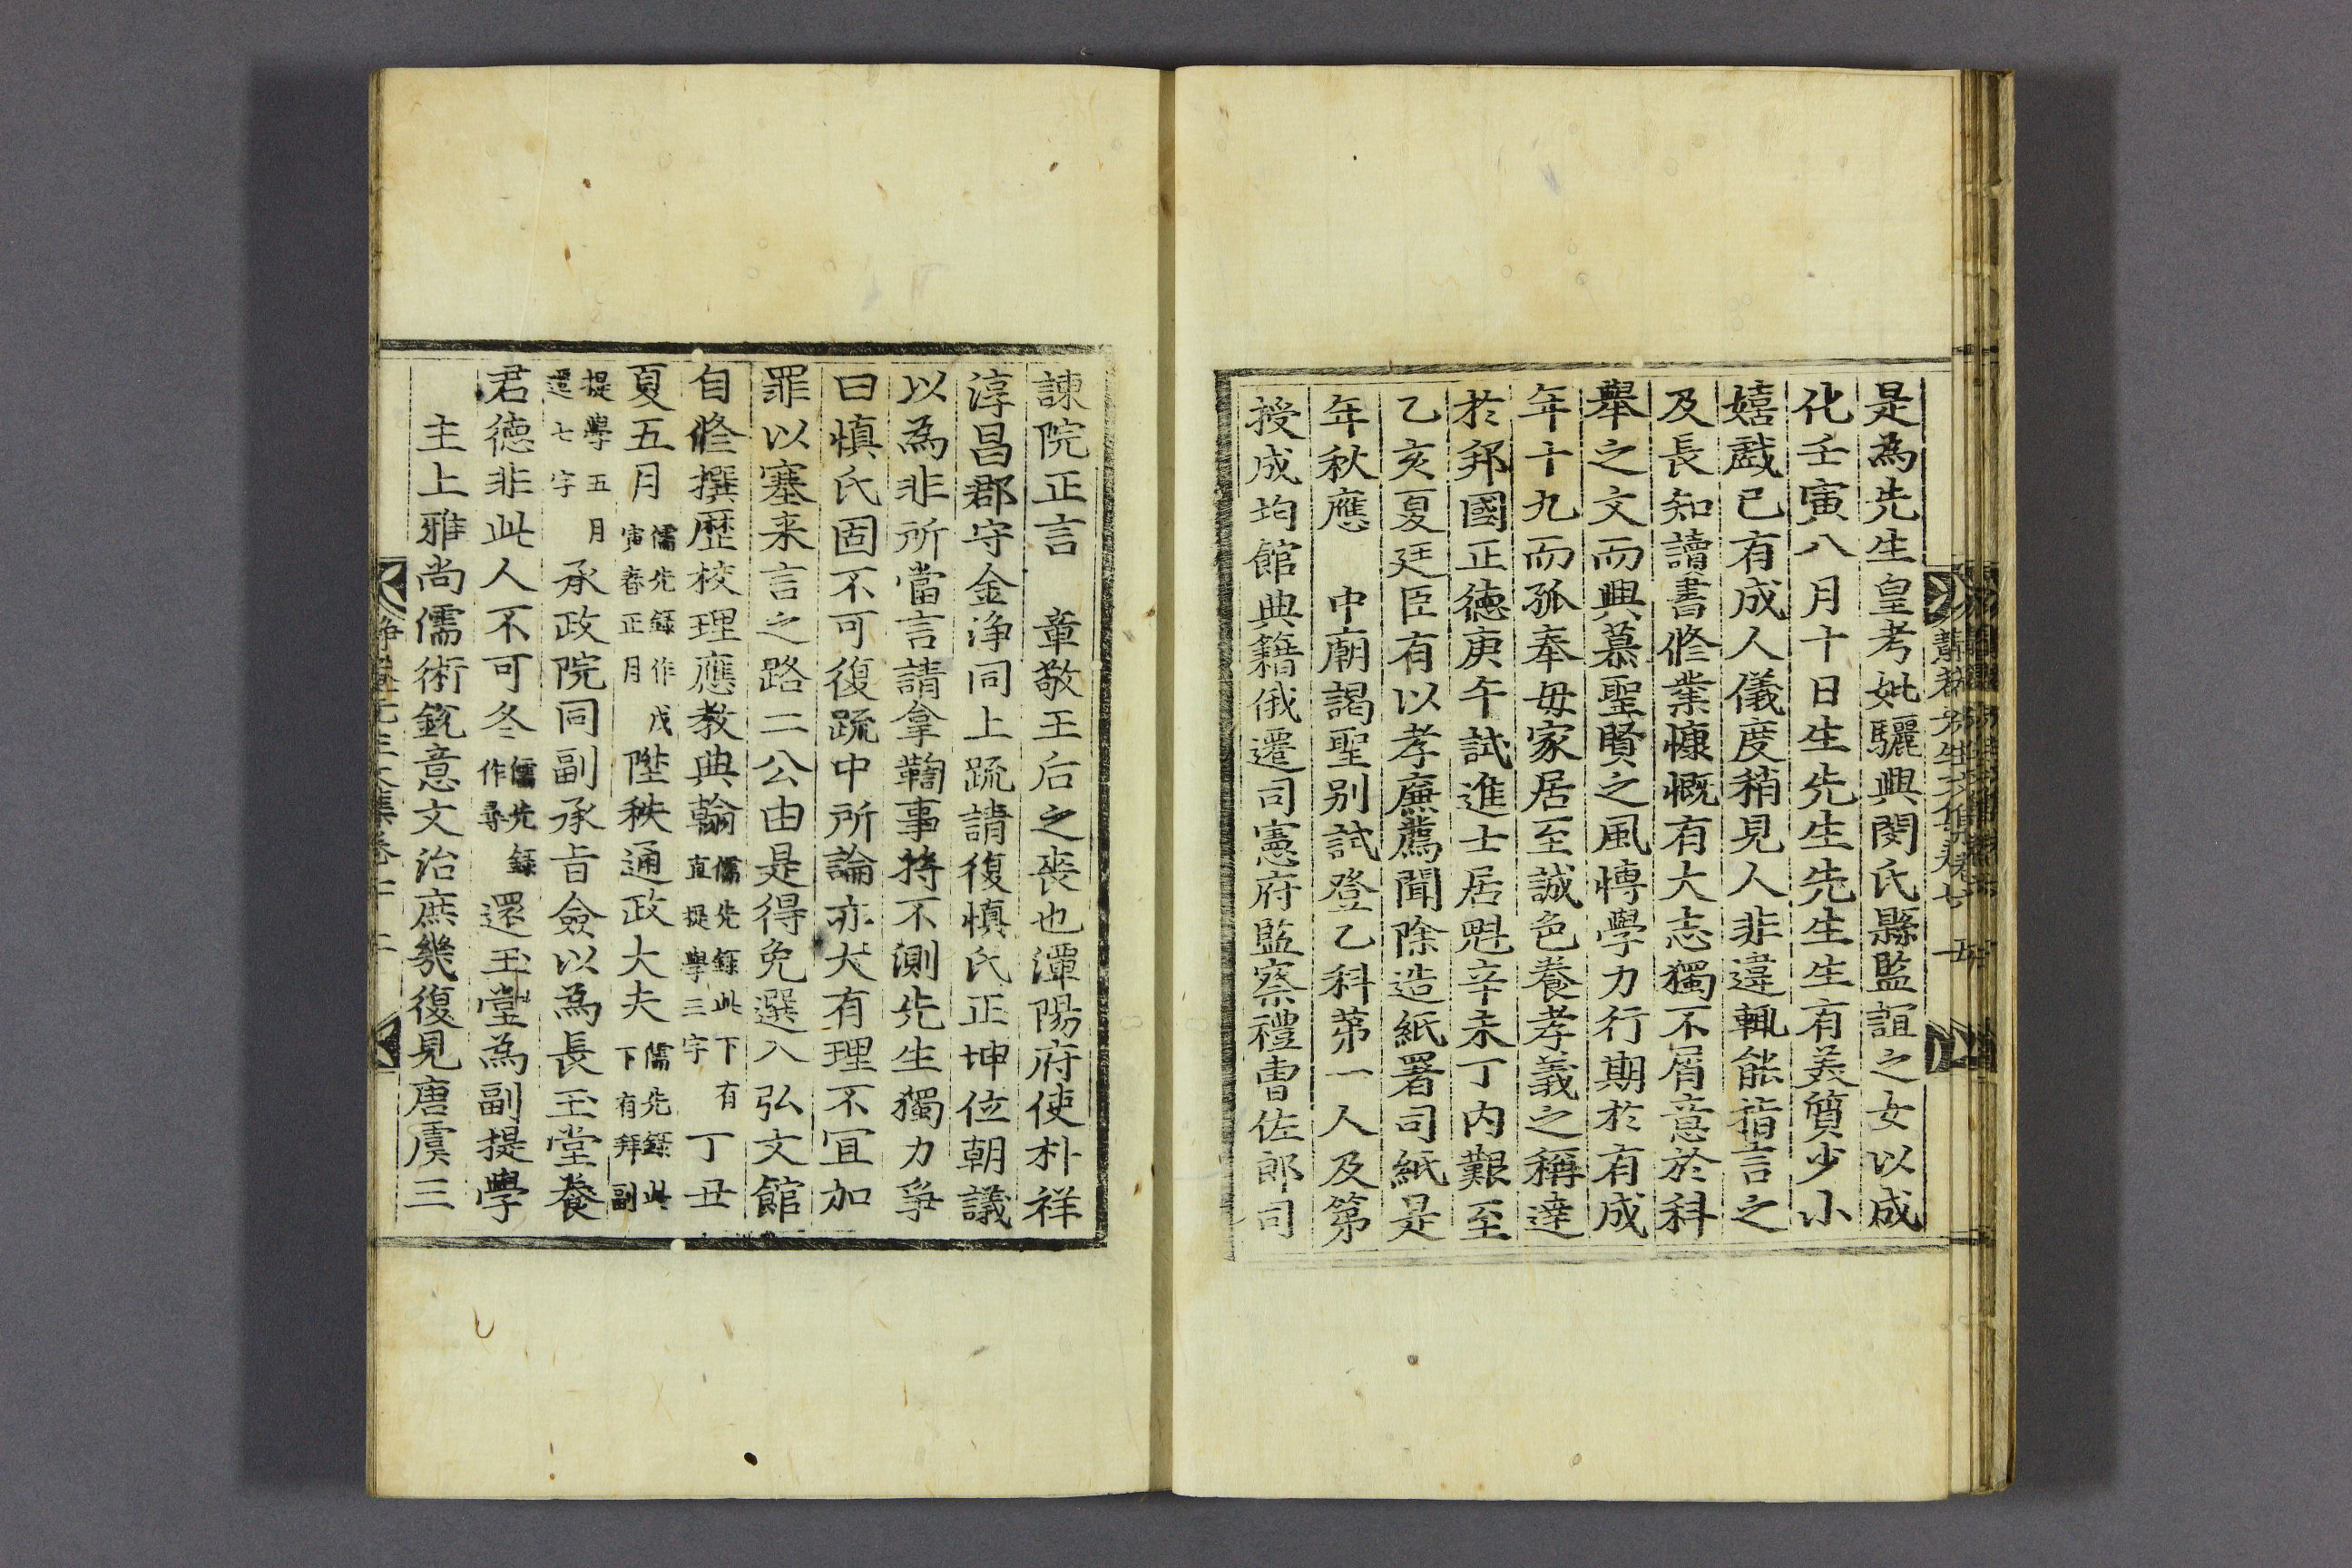 是為先生皇考妣驪興閔氏縣監誼之女以成
化壬寅八月十日生先生先生生有美質少小
嬉戲已有成人儀度稍見人非違輒能指言之
及長知讀書修業慷慨有大志獨不屑意於科
舉之文而興慕聖賢之風慱學力行期於有成
年十九而孤奉毋家居至誠色養孝義之稱達
於邦國正德庚午試進士居魁辛未丁内艱至
乙亥夏廷臣有以孝廉薦聞除造紙署司紙是
年秋應　中廟謁聖别試登乙科第一人及第
授成均館典籍俄遷司憲府監察禮曺佐郎司
諫院正言　章敬王后之喪也潭陽府使朴祥
淳昌郡守金淨同上疏請復慎氏正坤位朝議
以為非所當言請拿鞫事將不測先生獨力爭
曰慎氏固不可復疏中所論亦大有理不宜加
罪以塞来言之路二公由是得免選入弘文館
自修撰歷校理應教典翰儒先錄此下有直提學三字丁丑
夏五月儒先錄作戊寅春正月陞秩通政大夫儒先錄此下有拜副
提學五月還七字承政院同副承旨僉以為長玉堂養
君德非此人不可冬儒先錄作尋還玉堂為副提學
主上雅尚儒術銳意文治庶幾復見唐虞三